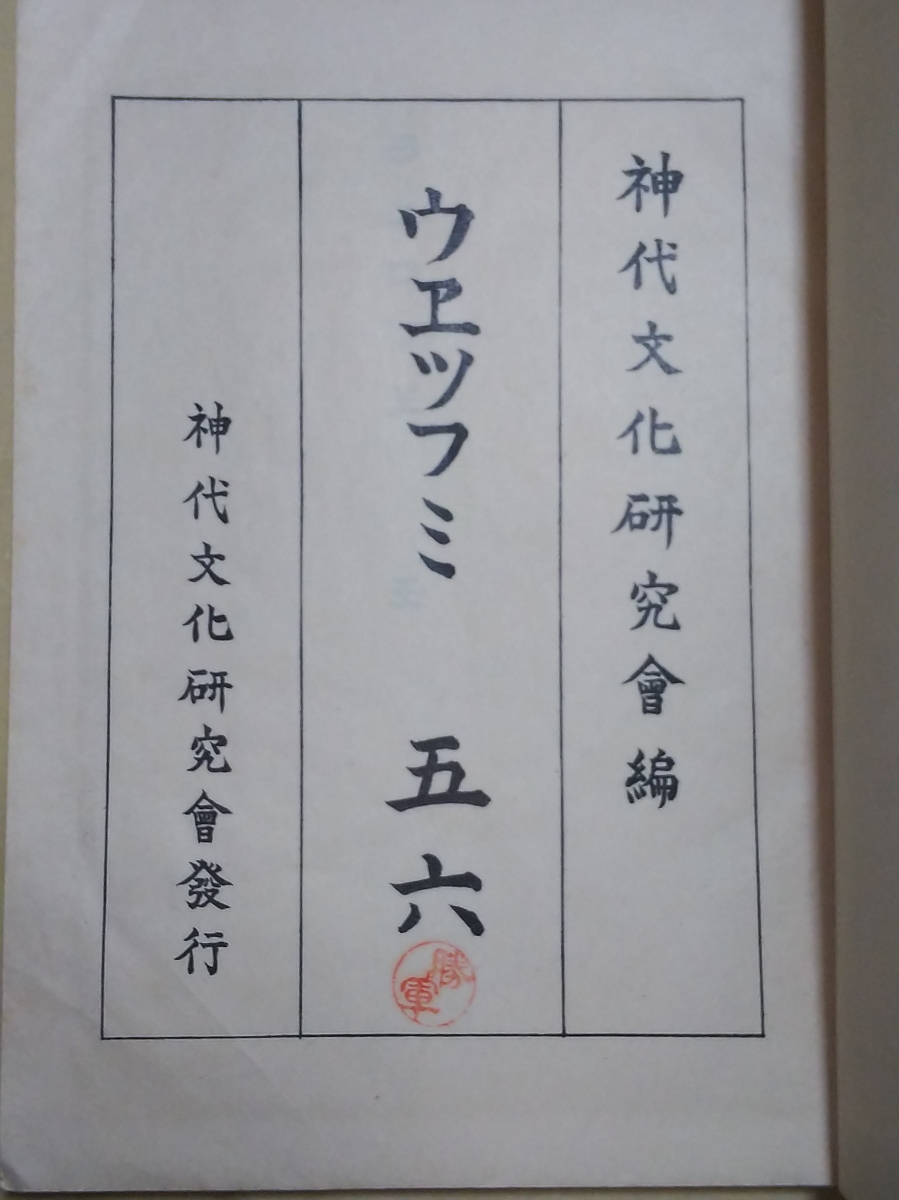 神代文化研究會編
ウヱツフミ 五六
勝軍
神代文化研究會發行